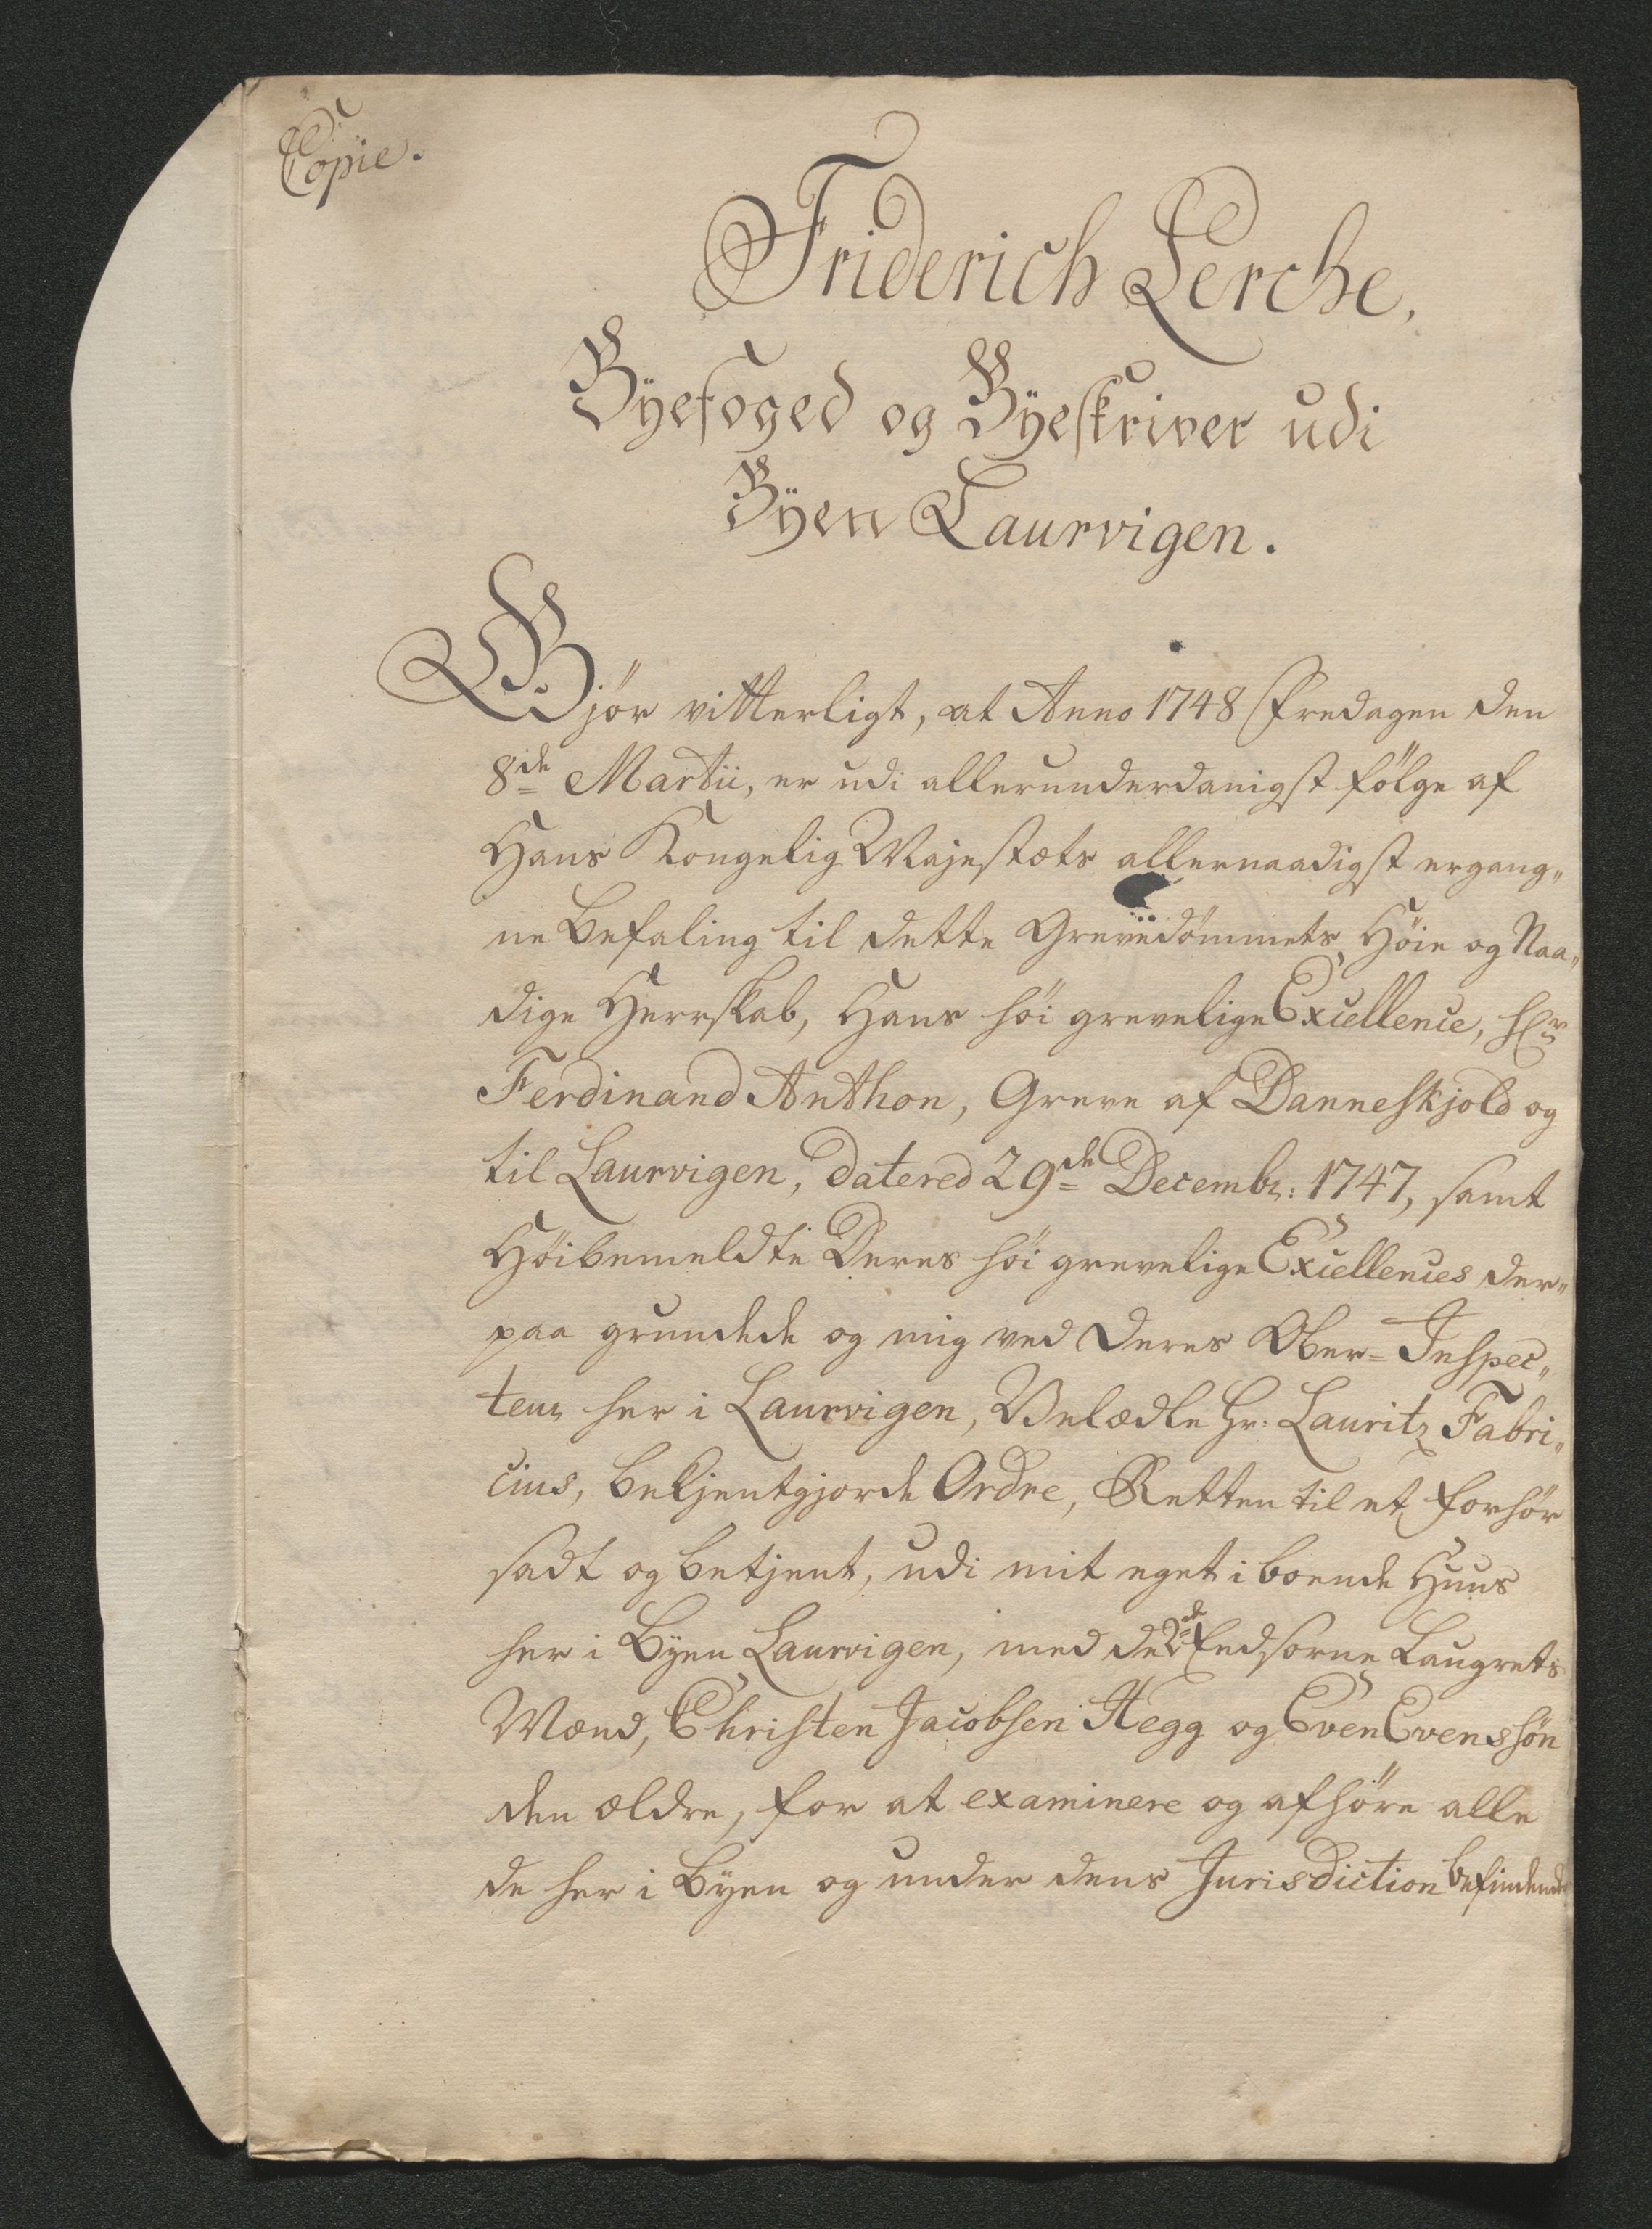 Copie.
Friderich Lerche,
Byefoged og Byeskriver udi
Byen Laurvigen.
Gjör vitterligt, at Anno 1748 Fredagen den
8de Martii, er udi allerunderdanigst fölge af
Hans Kongelig Majestæts allernaadigst ergang„
ne Befaling til dette Grevedömmets Höie og Naa„
dige Herrskab, Hans höi grevelige Excellence, Hr
Ferdinand Anthon, Greve af Danneskjold og
til Laurvigen, datered 29de Decembr: 1747, samt
Höibemeldte Deres höi grevelige Excellences der„
paa grundede og mig ved deres Ober=Inspec„
teur her i Laurvigen, Velædle Hr: Lauritz Fabri„
cius, bekjentgjorde Ordre, Retten til et Forhör
sadt og betjent, udi mit eget iboende Huus
her i Byen Laurvigen, med de 2de Eedsorne Laugrets
Mænd, Christen Jacobsen Hegg og Even Evenssön
den ældre, for at examinere og afhöre alle
de her i Byen og under dens Jurisdiction befindende